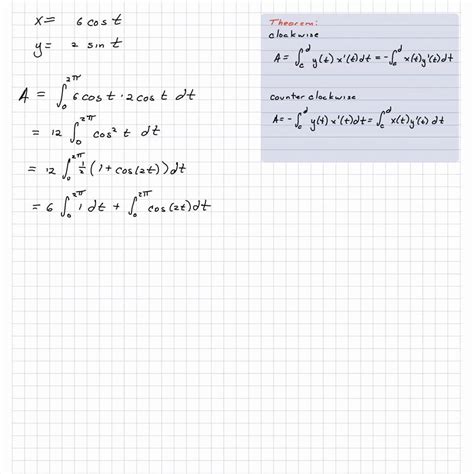 x = 6 cos t
y = 2 sin t
A = ∫₀^{2π} 6 cos t · 2 cos t dt
= 12 ∫₀^{2π} cos² t dt
= 12 ∫₀^{2π} ½ (1 + cos(2t)) dt
= 6 ∫₀^{2π} 1 dt + ∫₀^{2π} cos(2t) dt
Theorem:
clockwise
A = ∫_c^d y(t) x'(t) dt = -∫_c^d x(t) y'(t) dt
counter clockwise
A = -∫_c^d y(t) x'(t) dt = ∫_c^d x(t) y'(t) dt